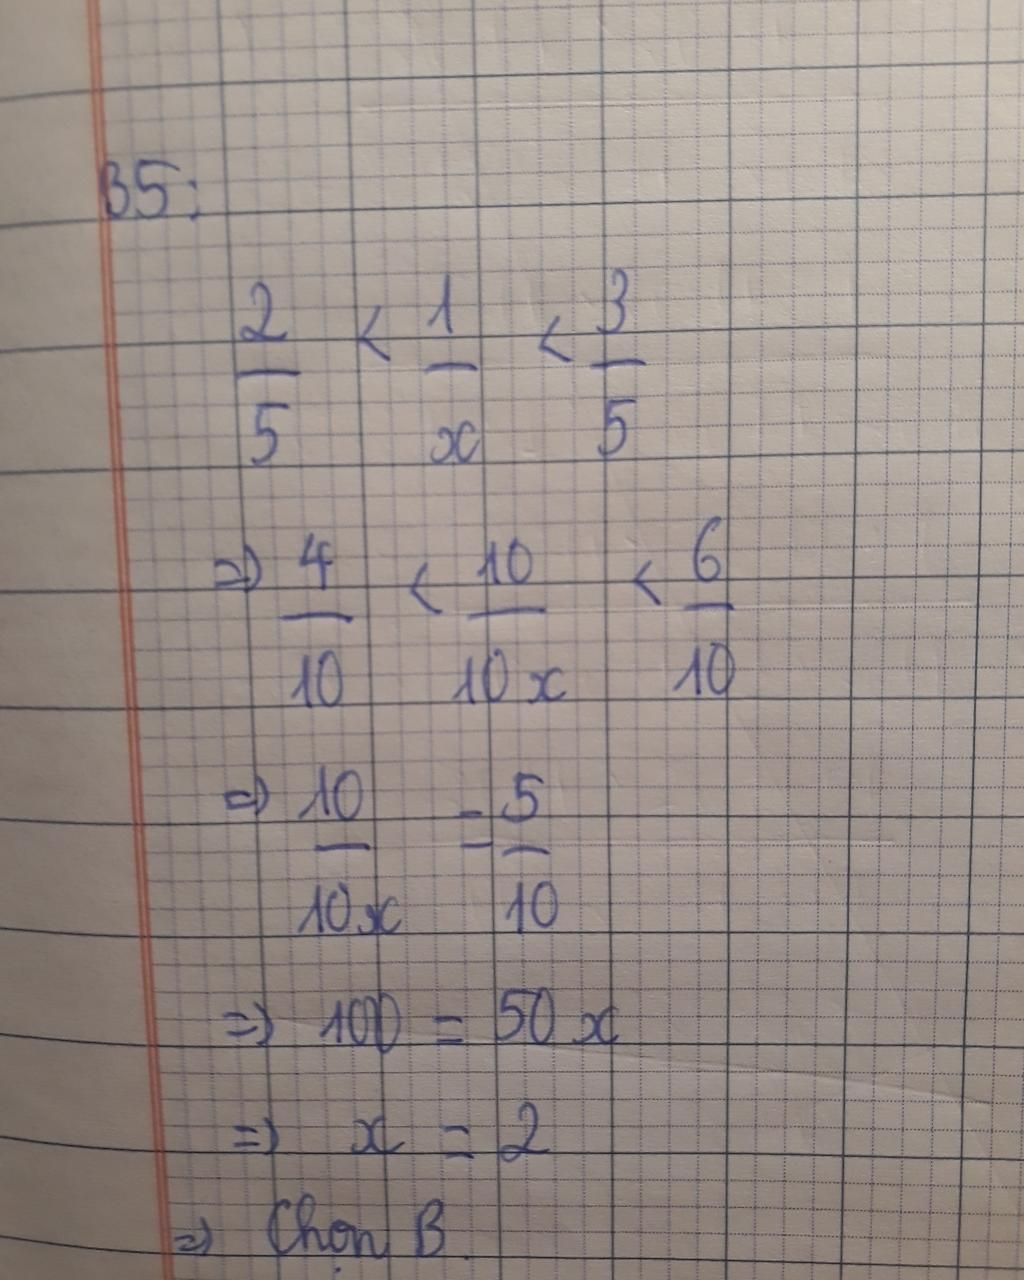 B5:
2/5 < 1/x < 3/5
=> 4/10 < 10/10x < 6/10
=> 10/10x = 5/10
=> 100 = 50x
=> x = 2
=> Chọn B.